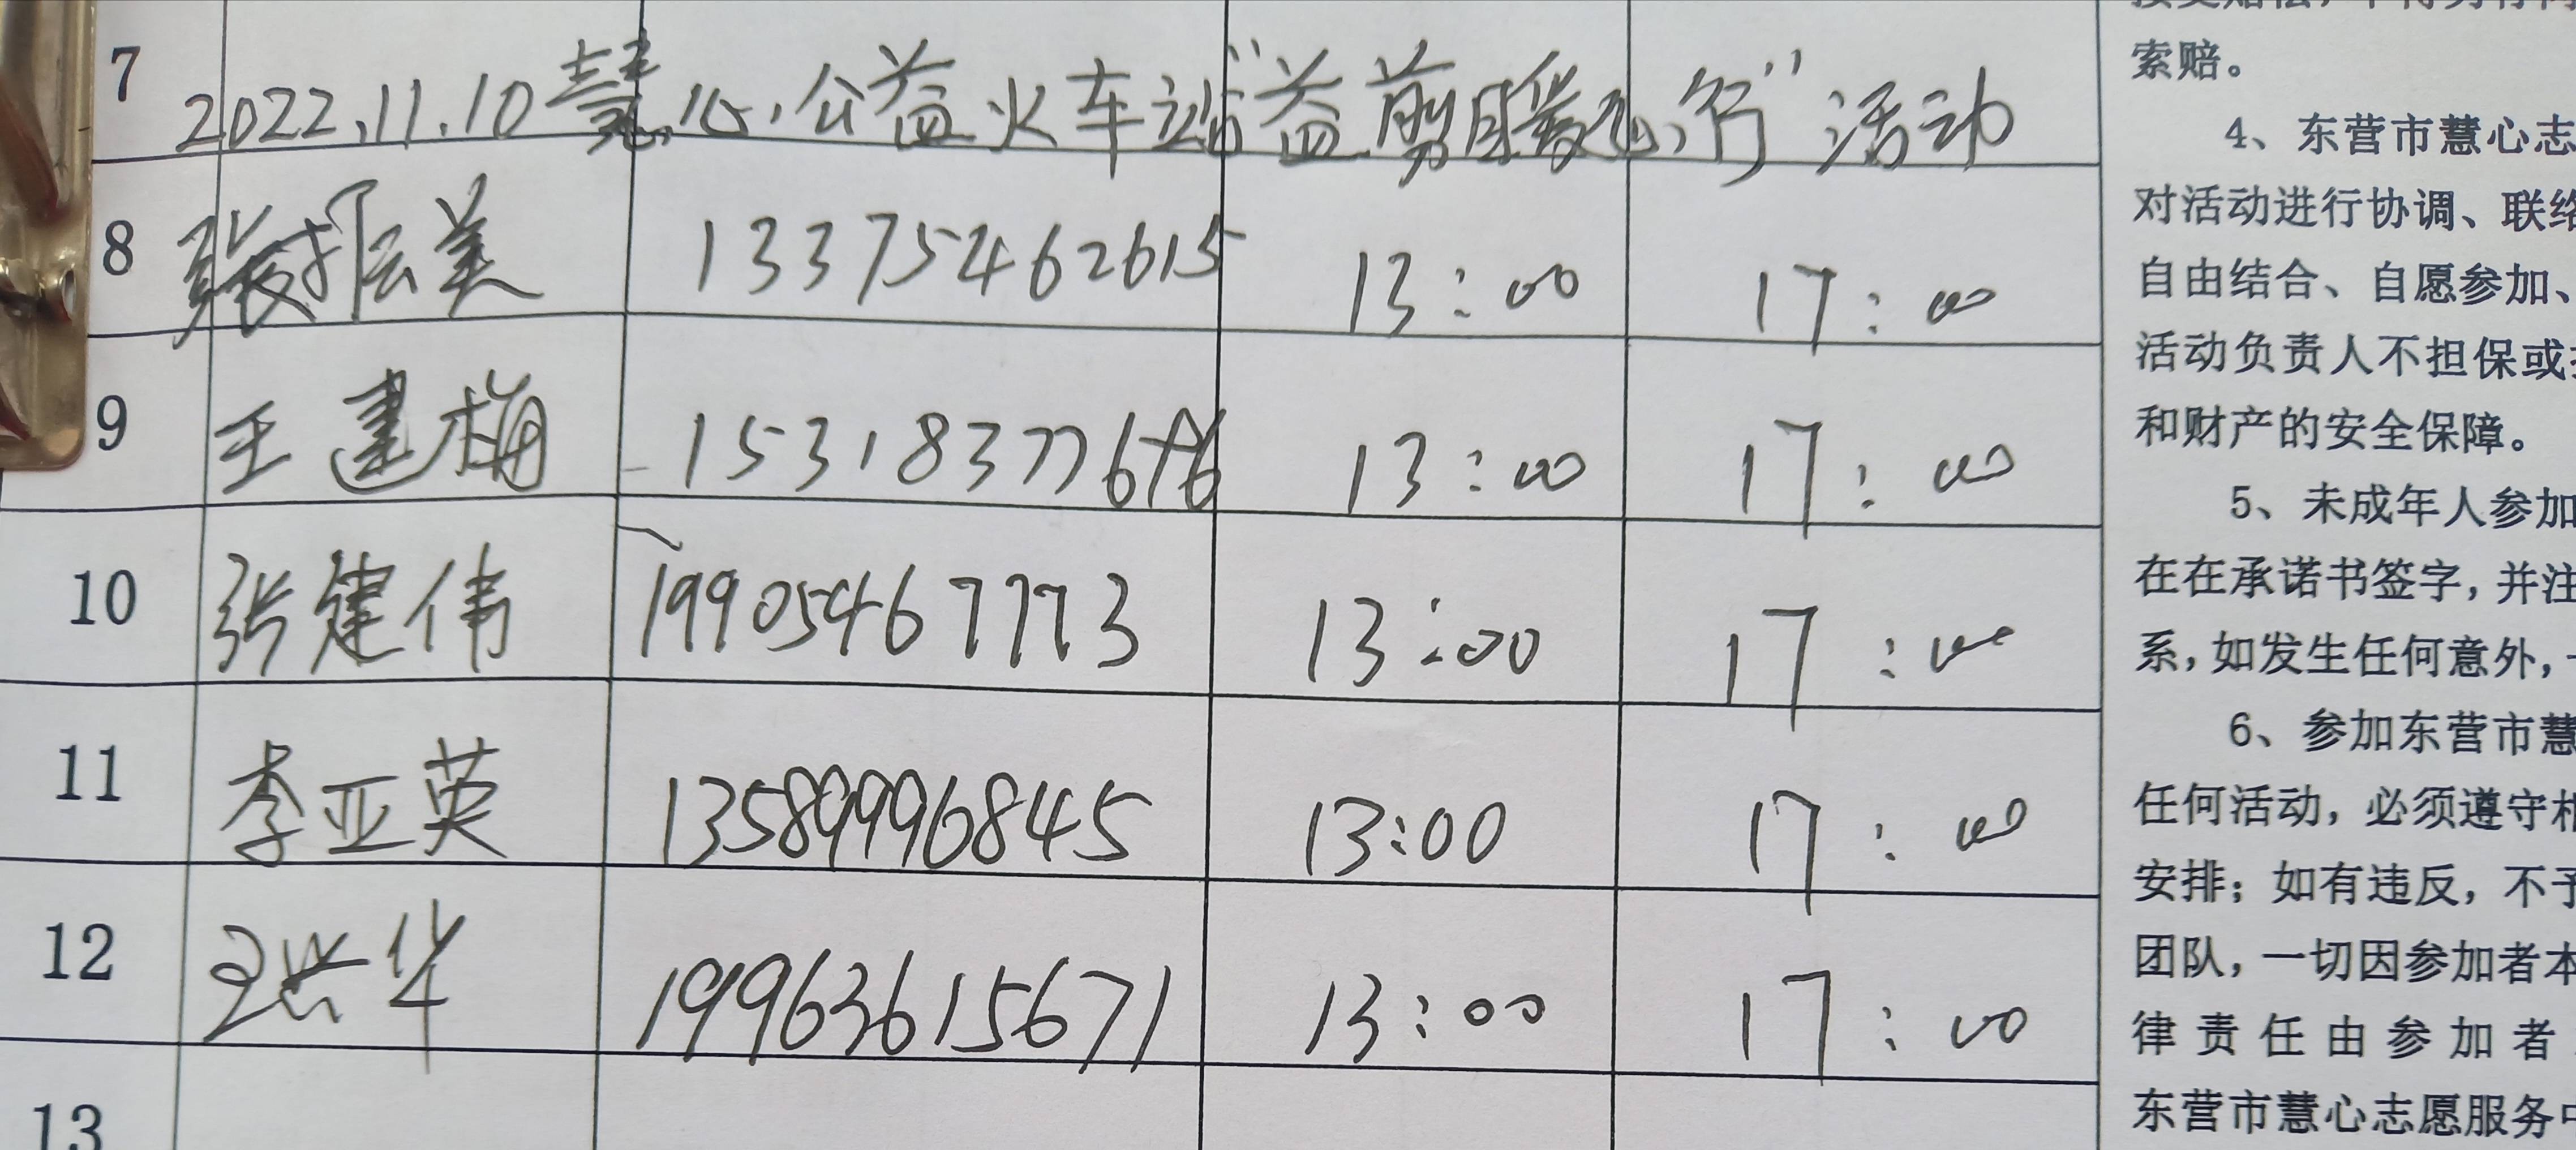 7 2022.11.10慧心公益火车站"益剪暖心行"活动
8 13375462615 13:00 17:00
9 王建梅 13:00 17:00
10 张建伟 19905467773 13:00 17:00
11 李亚英 13589996845 13:00 17:00
12 王兴华 19963615671 13:00 17:00
13
索赔。
4、东营市慧心志
对活动进行协调、联络
自由结合、自愿参加、
活动负责人不担保或
和财产的安全保障。
5、未成年人参加
在在承诺书签字,并注
系,如发生任何意外,
6、参加东营市慧
任何活动,必须遵守相
安排;如有违反,不予
团队,一切因参加者本
律责任由参加者
东营市慧心志愿服务中